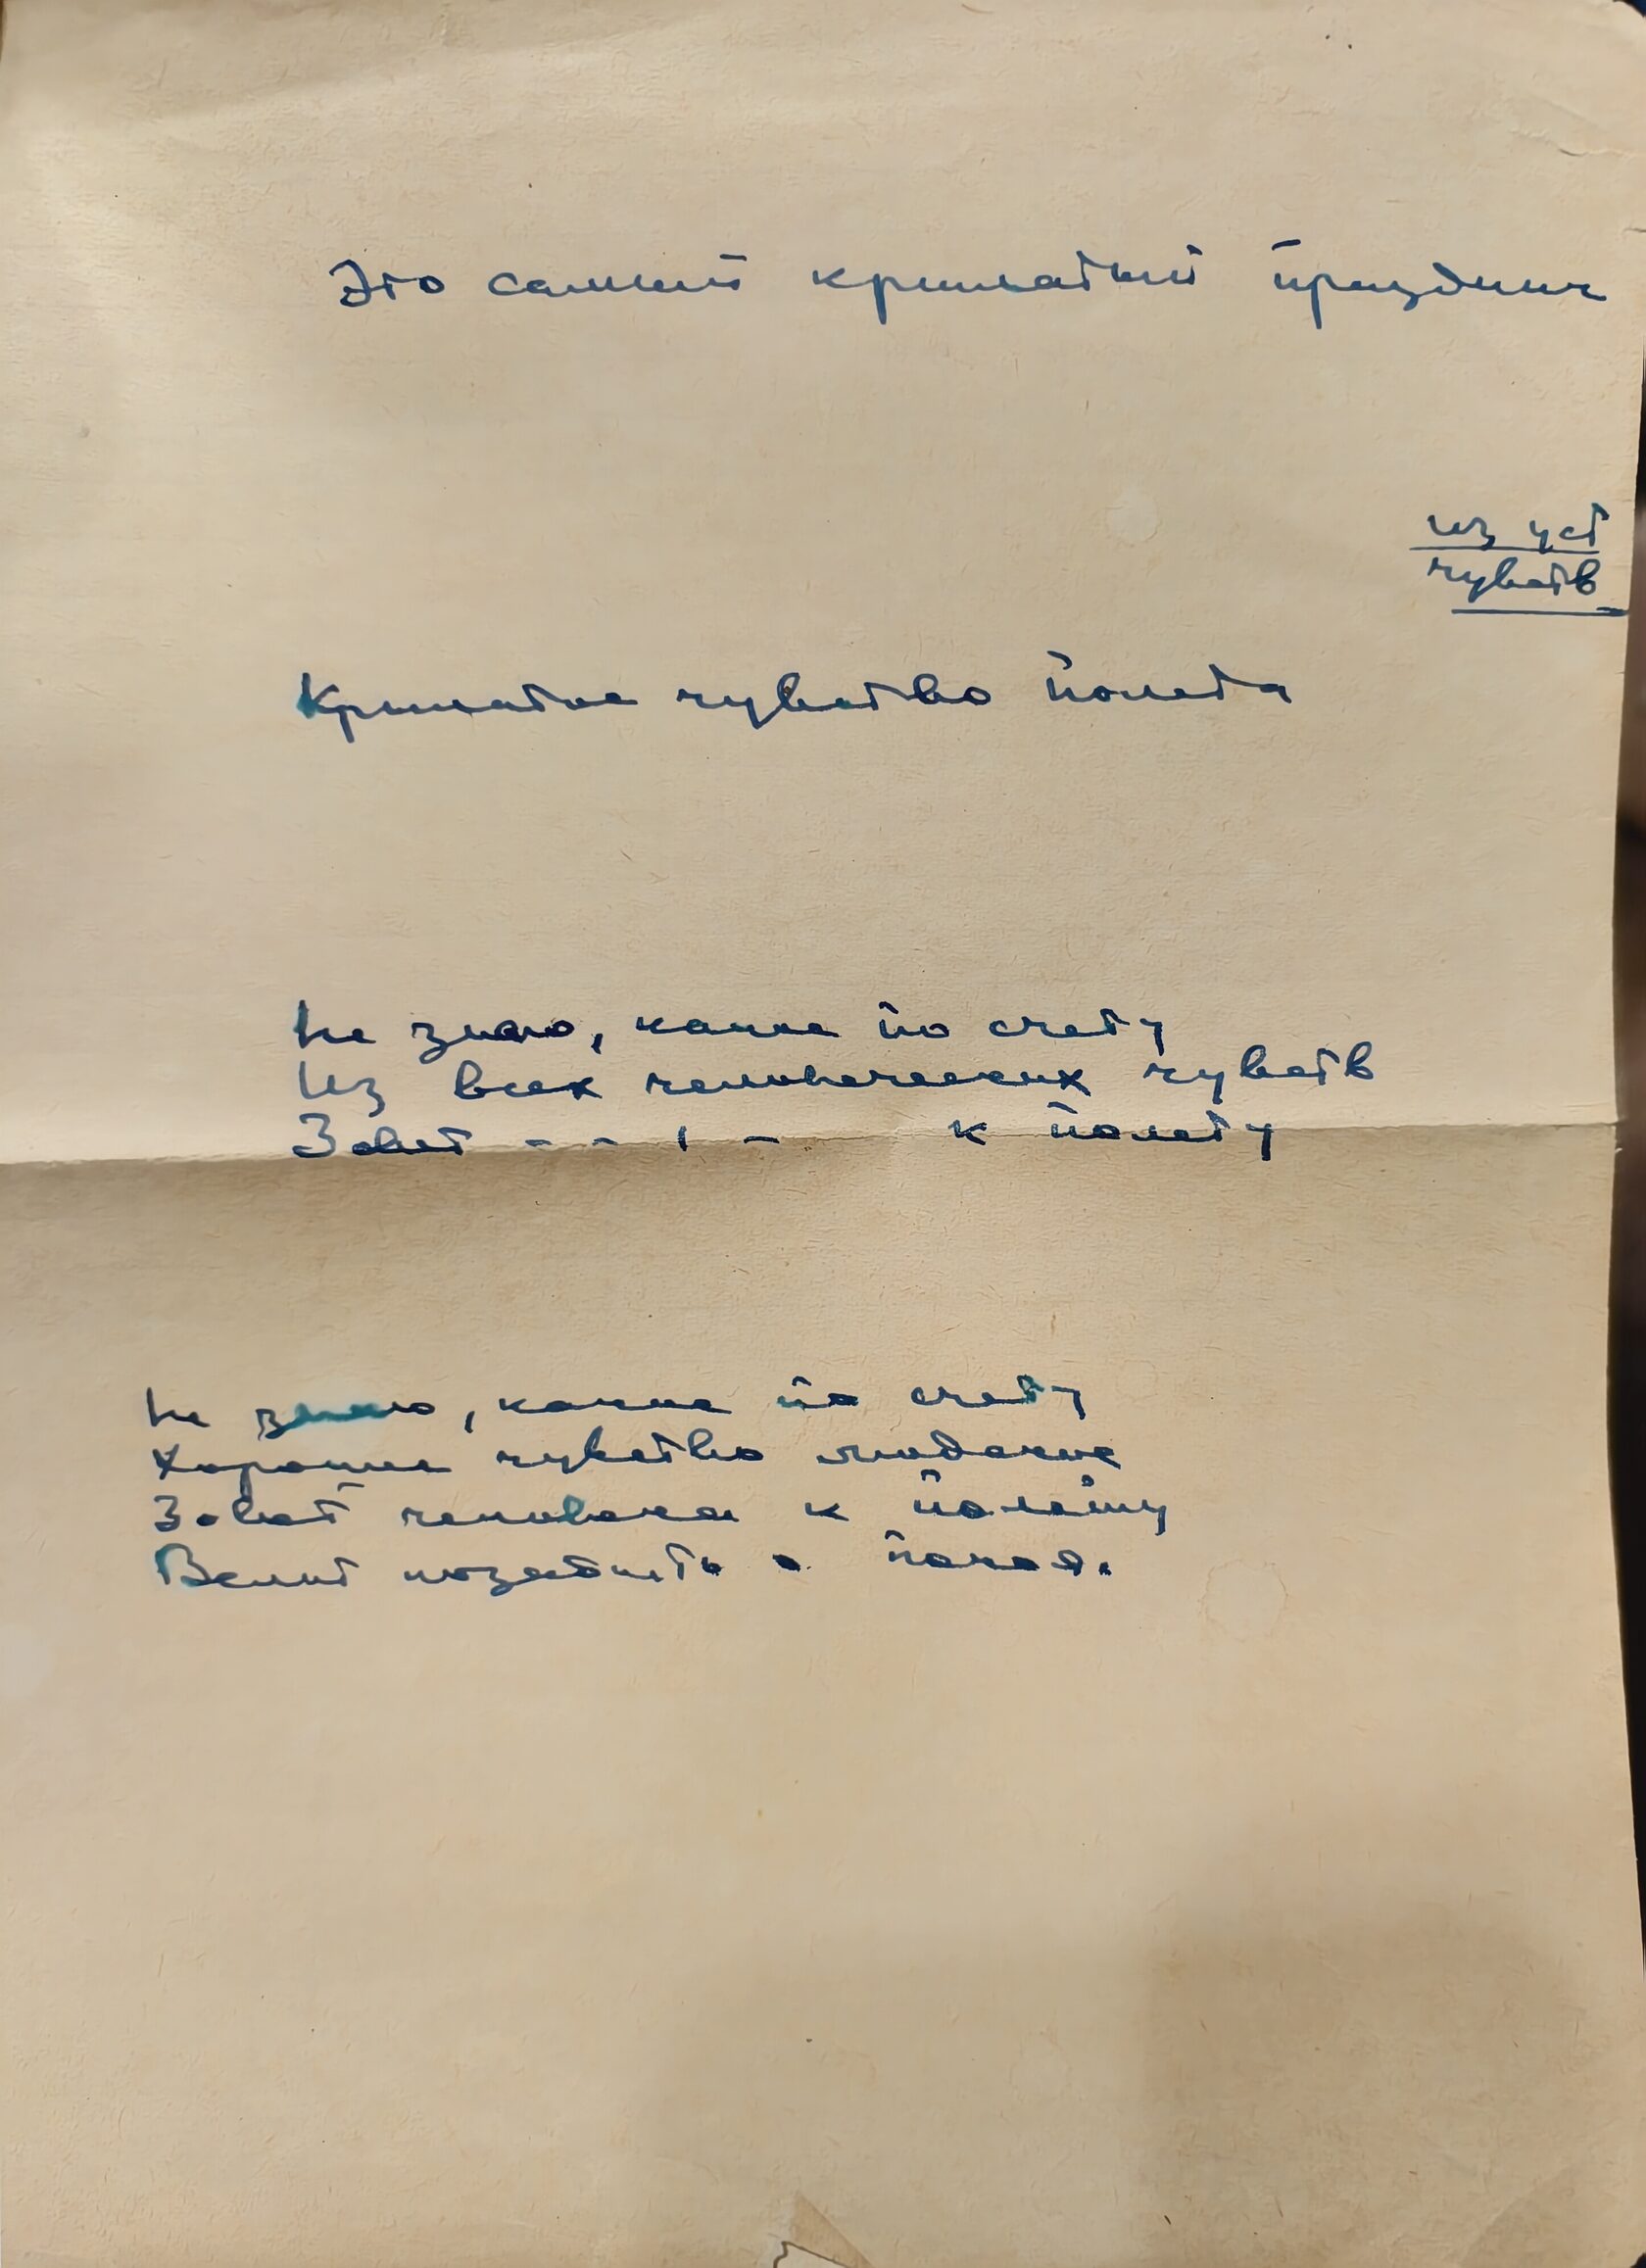 Это самый крылатый праздник
из уст
чувств
Крылатое чувство полета
Не знаю, какое по счету
Из всех человеческих чувств
Зовет - - ' - к полету
Не знаю, какое по счету
Хорошее чувство людское
Зовет человека к полету
Велит позабыть о покое.